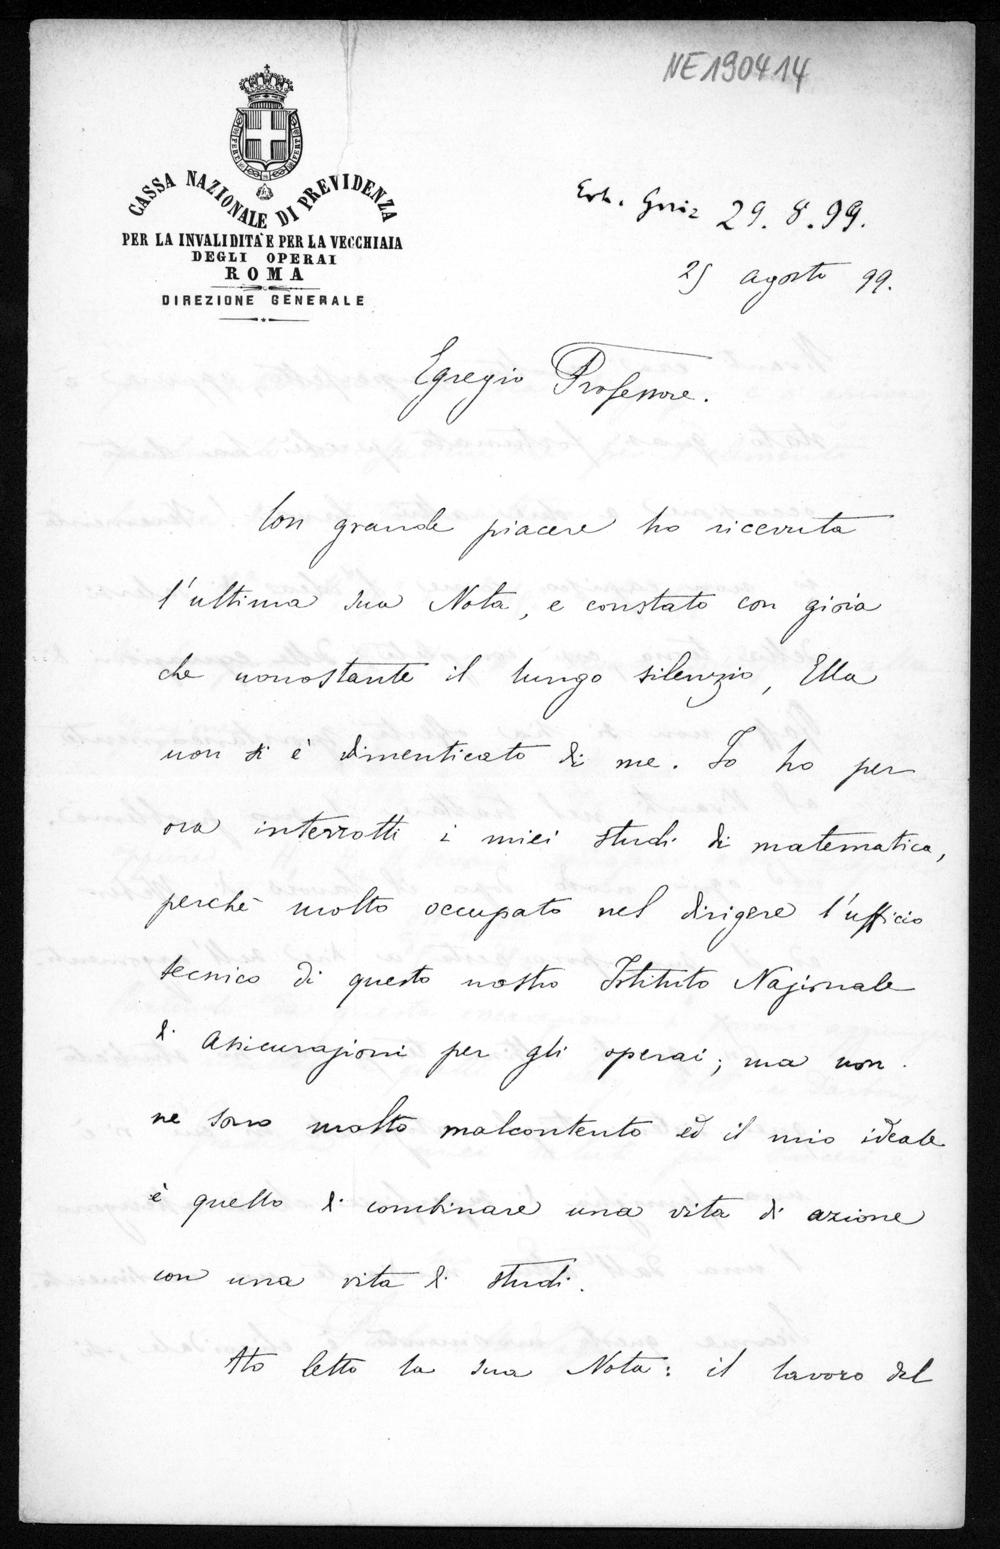 NE190414
CASSA NAZIONALE DI PREVIDENZA
PER LA INVALIDITÀ E PER LA VECCHIAIA
DEGLI OPERAI
ROMA
DIREZIONE GENERALE
29. 8. 99.
25 agosto 99.
Egregio Professore.
Con grande piacere ho ricevuta
l'ultima sua Nota, e constato con gioia
che nonostante il lungo silenzio, Ella
non si è dimenticato di me. Io ho per
ora interrotti i miei studi di matematica,
perchè molto occupato nel dirigere l'ufficio
tecnico di questo nostro Istituto Nazionale
di Assicurazioni per gli operai; ma non
ne sono molto malcontento ed il mio ideale
è quello di combinare una vita di azione
con una vita di studi.
Ho letto la sua Nota: il lavoro del